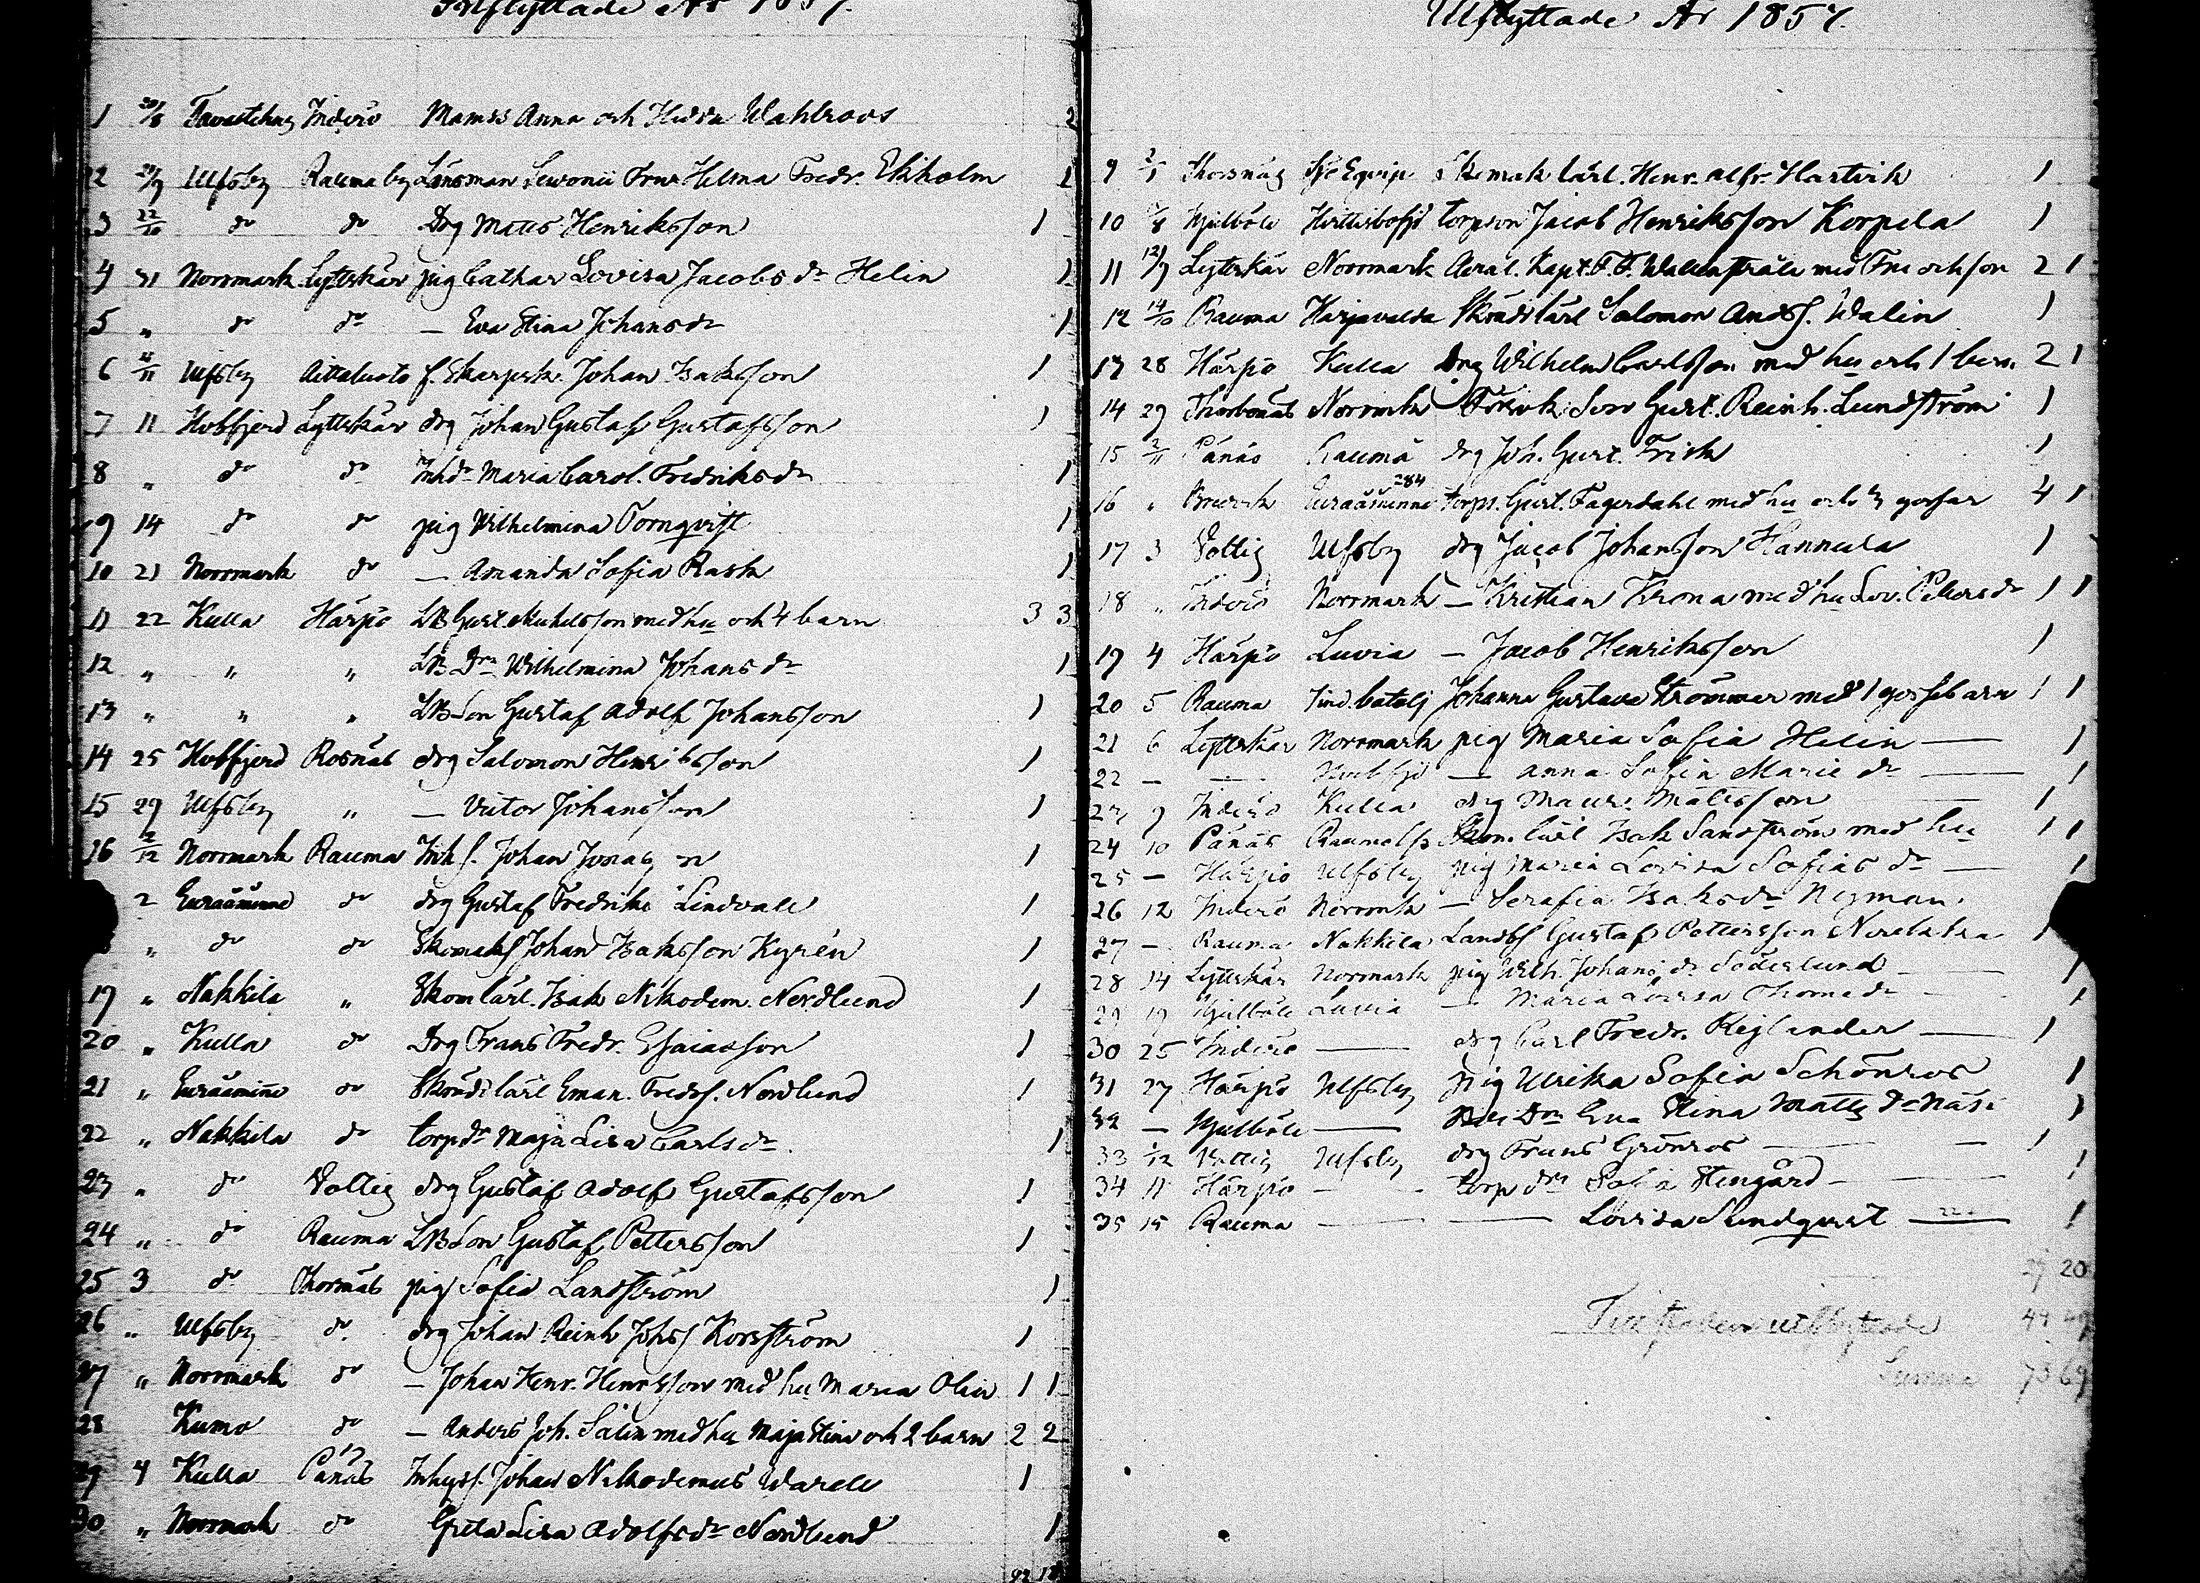 Inflyttade År 1857.
1 20/8 Tavastehus Inderö Mamss Anna och Hedda Wahlroos 2
2 29/9 Ulfsby Raumaby Länsman Lewonii Fru Helma Fredr. Ekholm 1
3 22/10 do do Drg Matts Henriksson 1
4 31 Norrmark Lyttskär pig Cathar Lovisa Jacobs dr Helin 1
5 " do do — Eva Stina Johans dr 1
6 4/11 Ulfsby Aittaluoto f. Skarpsk. Johan Isaksson 1
7 11 Hvbfjerd Lyttskär drg Johan Gustaf Gustafsson 1
8 " do do Inhdr Maria Carol. Fredriks dr 1
9 14 do do pig Wilhelmina Törnqvist 1
10 21 Norrmark do — Amanda Sofia Rask 1
11 22 Kulla Härpö LB Gust. Mickelsson med hu och 4 barn 3 3
12 " " " LB Dr Wilhelmina Johans dr 1
13 " " " LBSon Gustaf Adolf Johansson 1
14 25 Hvbfjerd Rosnäs drg Salomon Henriksson 1
15 29 Ulfsby " — Victor Johansson 1
16 2/12 Norrmark Rauma Inhs. Johan Jonas n 1
2 Euraåminne do drg Gustaf Fredrik Lindvall 1
" do do Skomaks Johan Isaksson Kyrén 1
19 " Nakkila " Skomlärl. Isak Nikodem. Nordlund 1
20 " Kulla do Drg Frans Fredr. Esaiasson 1
21 " Euraåminne do Skräddlärl Eman. Fredrs. Nordlund 1
22 " Nakkila do torpdr Maja Lisa Carls dr 1
23 " do Voltig drg Gustaf Adolf Gustafsson 1
24 " do Rauma LBSon Gustaf Pettersson 1
25 3 do Thornäs pig Sofia Landström 1
26 " Ulfsby do drg Johan Reinh Johss Korsström 1
27 " Norrmark do — Johan Henr. Henrsson med hu Maria Olin 1 1
28 Kumo do — Anders Joh. Salin med hu Maja Stina och 2 barn 2 2
29 4 Kulla Pånäs Inhyss. Johan Nikodemus Warell 1
30 " Norrmark do Greta Lisa Adolfs dr Nordlund 1
Utflyttade År 1857.
9 Skomak lärl. Henr. Alfr. Hartvik 1
10 Mjölbole torpson Jacob Henriksson Korpela 1
11 12/9 Lyttskär Norrmark Kapt. F. F. Wallenstråle med Fru och son 2 1
12 14/10 Rauma Harjavalda Skrädlärl Salomon Andss. Walin 1
13 28 Härpö Kulla drg Wilhelm Carlsson med hu och 1 barn 2 1
14 29 Norrmk Son Gust. Reinh. Lundström 1
15 2/11 Pånäs Rauma drg Joh. Gust. Frisk 1
16 " Euraåminne 284 torps. Gust. Fagerdahl med hu och 3 gossar 4 1
17 3 Voltig Ulfsby drg Jacob Johansson Hannula 1
18 " Inderö Norrmark — Kristian Krona med hu Lov. Petters dr 1 1
19 4 Härpö Luvia — Jacob Henriksson 1
20 5 Rauma find. batalj Johanna Gustava Strömmer med 1 gossebarn 1 1
21 6 Lyttskär Norrmark pig Maria Sofia Helin — 1
22 — — Hvbfjd — Anna Sofia Marie dr — 1
23 9 Inderö Kulla drg Maur. Mattsson 1
24 10 Pånäs Skom. lärl Isak Sandström med hu 1 1
25 — Härpö Ulfsby pig Maria Lovisa Sofias dr — 1
26 12 Inderö Norrmk — Serafia Isaks dr Nyman.
27 — Rauma Nakkila Landbs Gustaf Pettersson 1
28 14 Lyttskär Norrmark pig Wilh. Johans dr Söderlund — 1
29 19 Mjölbole Luvia — Maria Lovisa Thome dr — 1
30 25 Inderö — drg Carl Fredr. Rejlander — 1
31 27 Härpö Ulfsby pig Ulrika Sofia Schönros 1
32 — Mjölbole — Dr Eva Stina Matts dr Näsi 1
33 1/12 Voltig Ulfsby drg Frans Grönros — 1
34 11 Härpö — torp dr Sofia Stengård — 1
35 15 Rauma — — Lovisa Sundqvist — 1
29 20
utflyttade 44 49
Summa 73 69